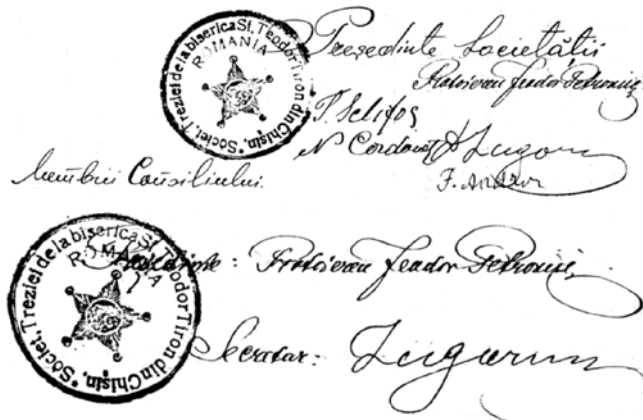 Societ. Treziei de la biserica Sf. Teodor Tiron din Chișin.
ROMANIA
Președinte Societății
Protoiereu Feodor Petrovici
P. Selifos
N Cordon
Lugarin
Membrii Consiliului.
Societ. Treziei de la biserica Sf. Teodor Tiron din Chișin.
ROMANIA
Președinte: Protoiereu Feodor Petrovici
Secretar: Lugarin